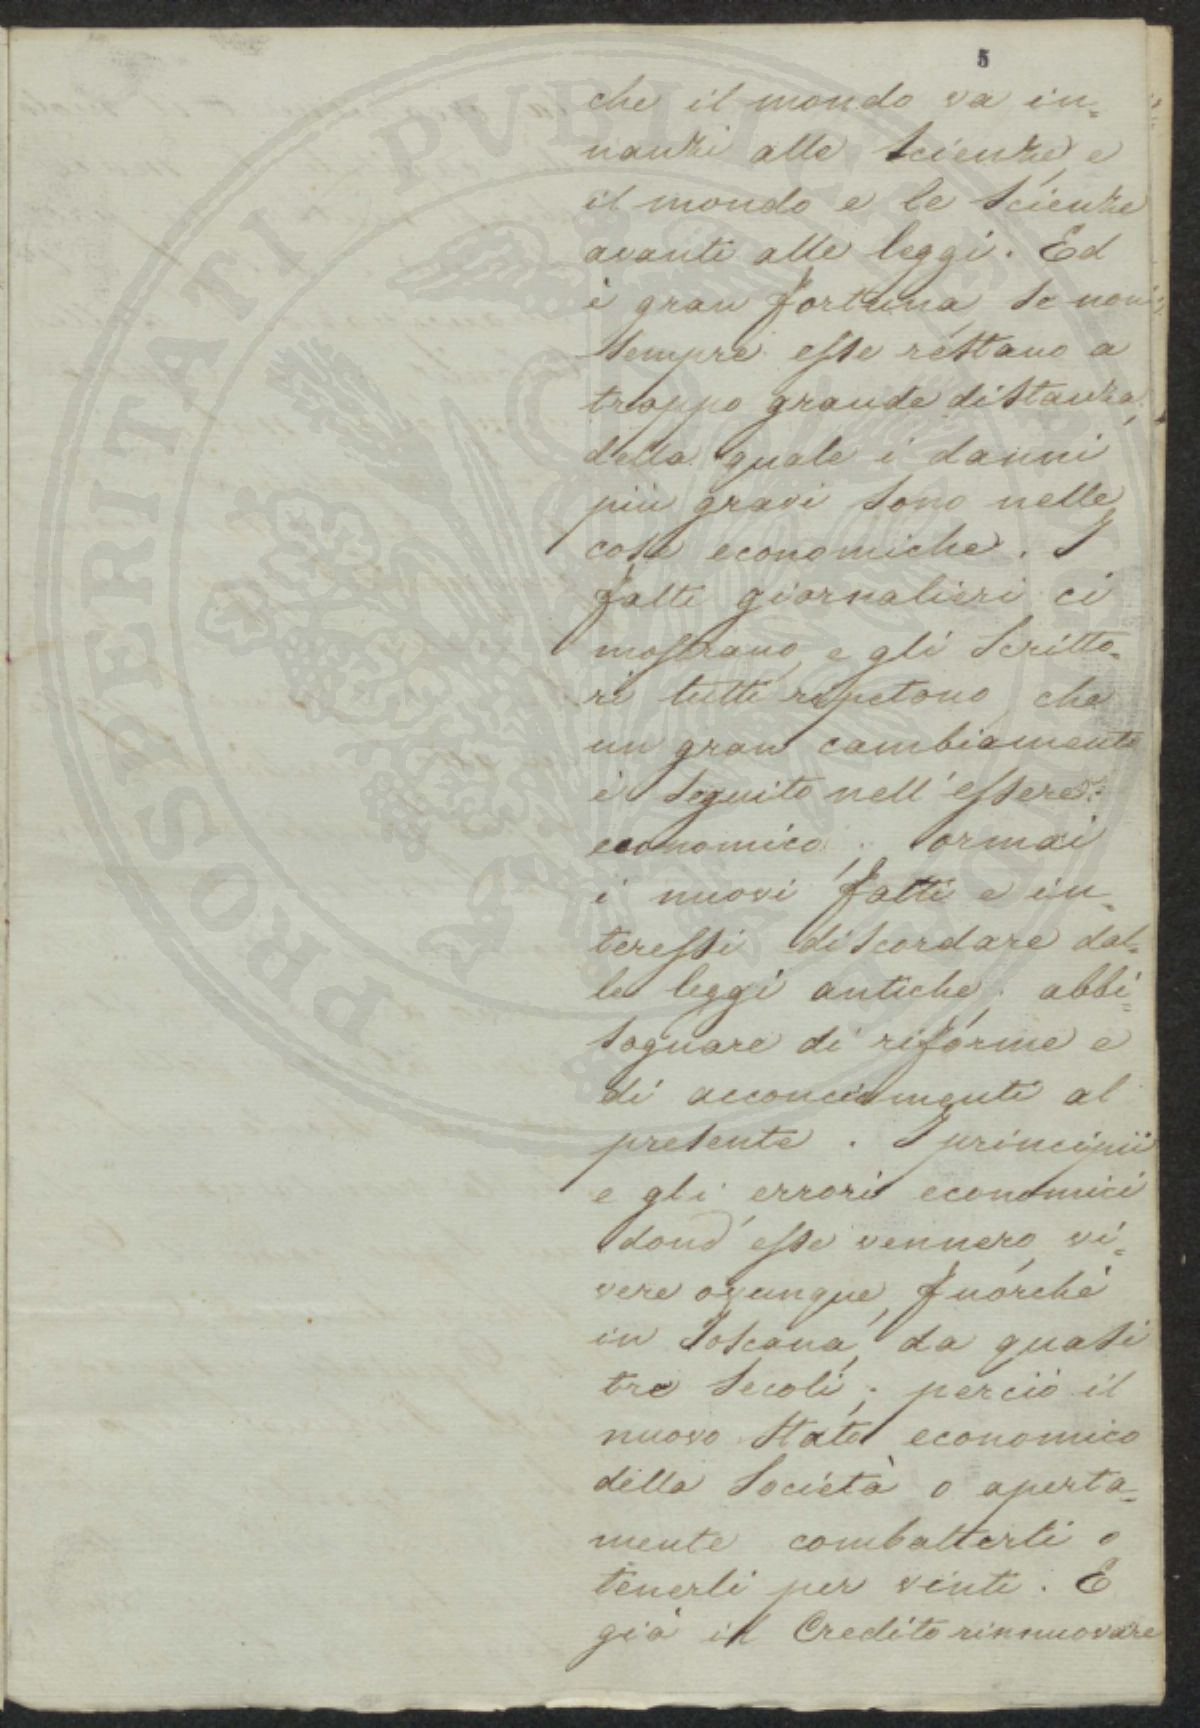 5
che il mondo va in=
nanzi alle scienze, e
il mondo e le scienze
avanti alle leggi. Ed
è gran fortuna, se non
sempre esse restano a
troppo grande distanza,
della quale i danni
più gravi sono nelle
cose economiche. I
fatti giornalieri ci
mostrano, e gli scritto=
ri tutti ripetono che
un gran cambiamento
è seguito nell'essere
economico; ormai
i nuovi fatti e in=
teressi discordare dal=
le leggi antiche; abbi=
sognare di riforme e
di acconciamenti al
presente. I principii
e gli errori economici
dond'esse vennero, vi=
vere ovunque, fuorchè
in Toscana, da quasi
tre secoli; perciò il
nuovo stato economico
della società o aperta=
mente combatterli o
tenerli per vinti. E
già il Credito rinnuovare
PROSPERITATI PVBLICAE